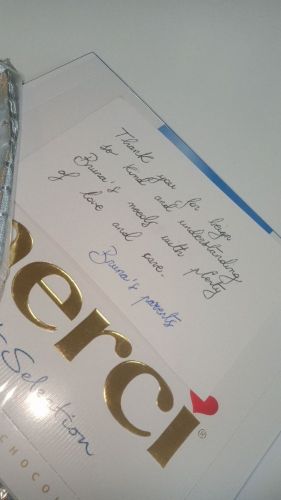 Thank you for beign
so kind and understanding
Bruna's needs with plenty
of love and care.
Bruna's parents
merci
Selection
CHOCO
®